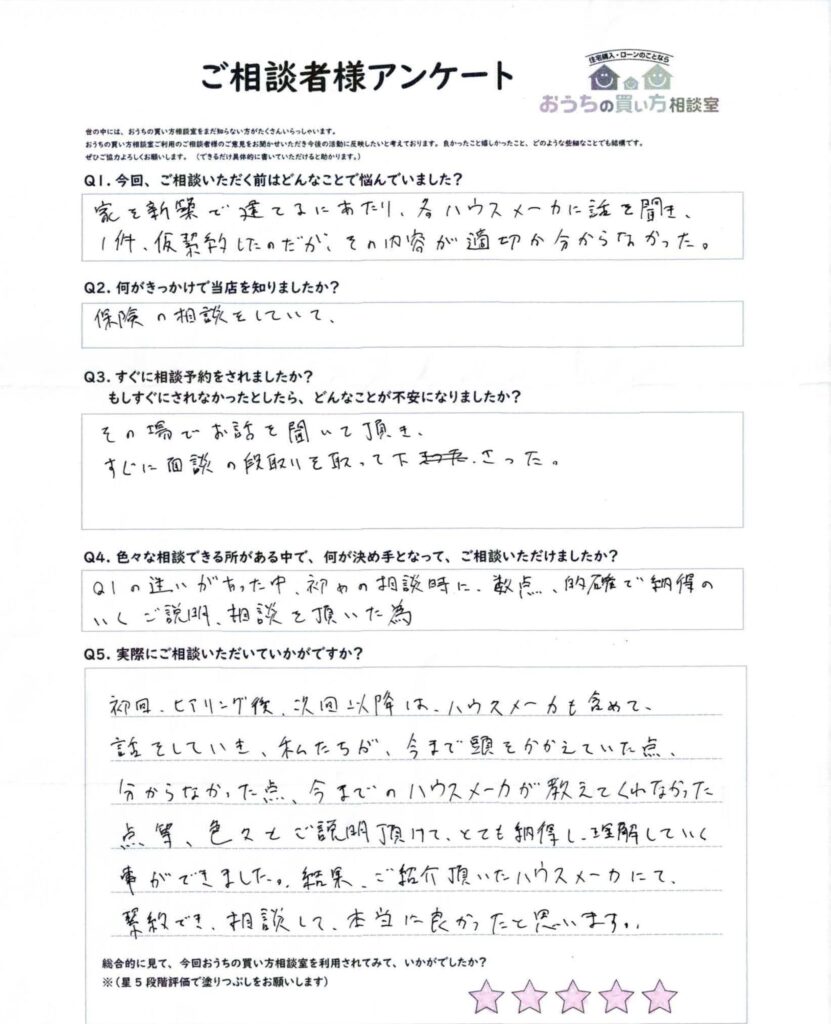 ご相談者様アンケート
住宅購入・ローンのことなら
おうちの買い方相談室
世の中には、おうちの買い方相談室をまだ知らない方がたくさんいらっしゃいます。
おうちの買い方相談室ご利用のご相談者様のご意見をお聞かせいただき今後の活動に反映したいと考えております。良かったこと嬉しかったこと、どのような些細なことでも結構です。
ぜひご協力よろしくお願いします。（できるだけ具体的に書いていただけると助かります。）
Q1. 今回、ご相談いただく前はどんなことで悩んでいました？
家を新築で建てるにあたり、各ハウスメーカに話を聞き、
1件、仮契約したのだが、その内容が適切か分からなかった。
Q2. 何がきっかけで当店を知りましたか？
保険の相談をしていて、
Q3. すぐに相談予約をされましたか？
もしすぐにされなかったとしたら、どんなことが不安になりましたか？
その場でお話を聞いて頂き、
すぐに面談の段取りを取って下さった。
Q4. 色々な相談できる所がある中で、何が決め手となって、ご相談いただけましたか？
Q1の迷いがあった中、初めの相談時に、数点、的確で納得の
いくご説明、相談を頂いた為
Q5. 実際にご相談いただいていかがですか？
初回、ヒアリング後、次回以降は、ハウスメーカも含めて、
話をしていき、私たちが、今まで頭をかかえていた点、
分からなかった点、今までのハウスメーカが教えてくれなかった
点等、色々とご説明頂けて、とても納得し、理解していく
事ができました。結果、ご紹介頂いたハウスメーカにて、
契約でき、相談して、本当に良かったと思います。
総合的に見て、今回おうちの買い方相談室を利用されてみて、いかがでしたか？
※（星5段階評価で塗りつぶしをお願いします）